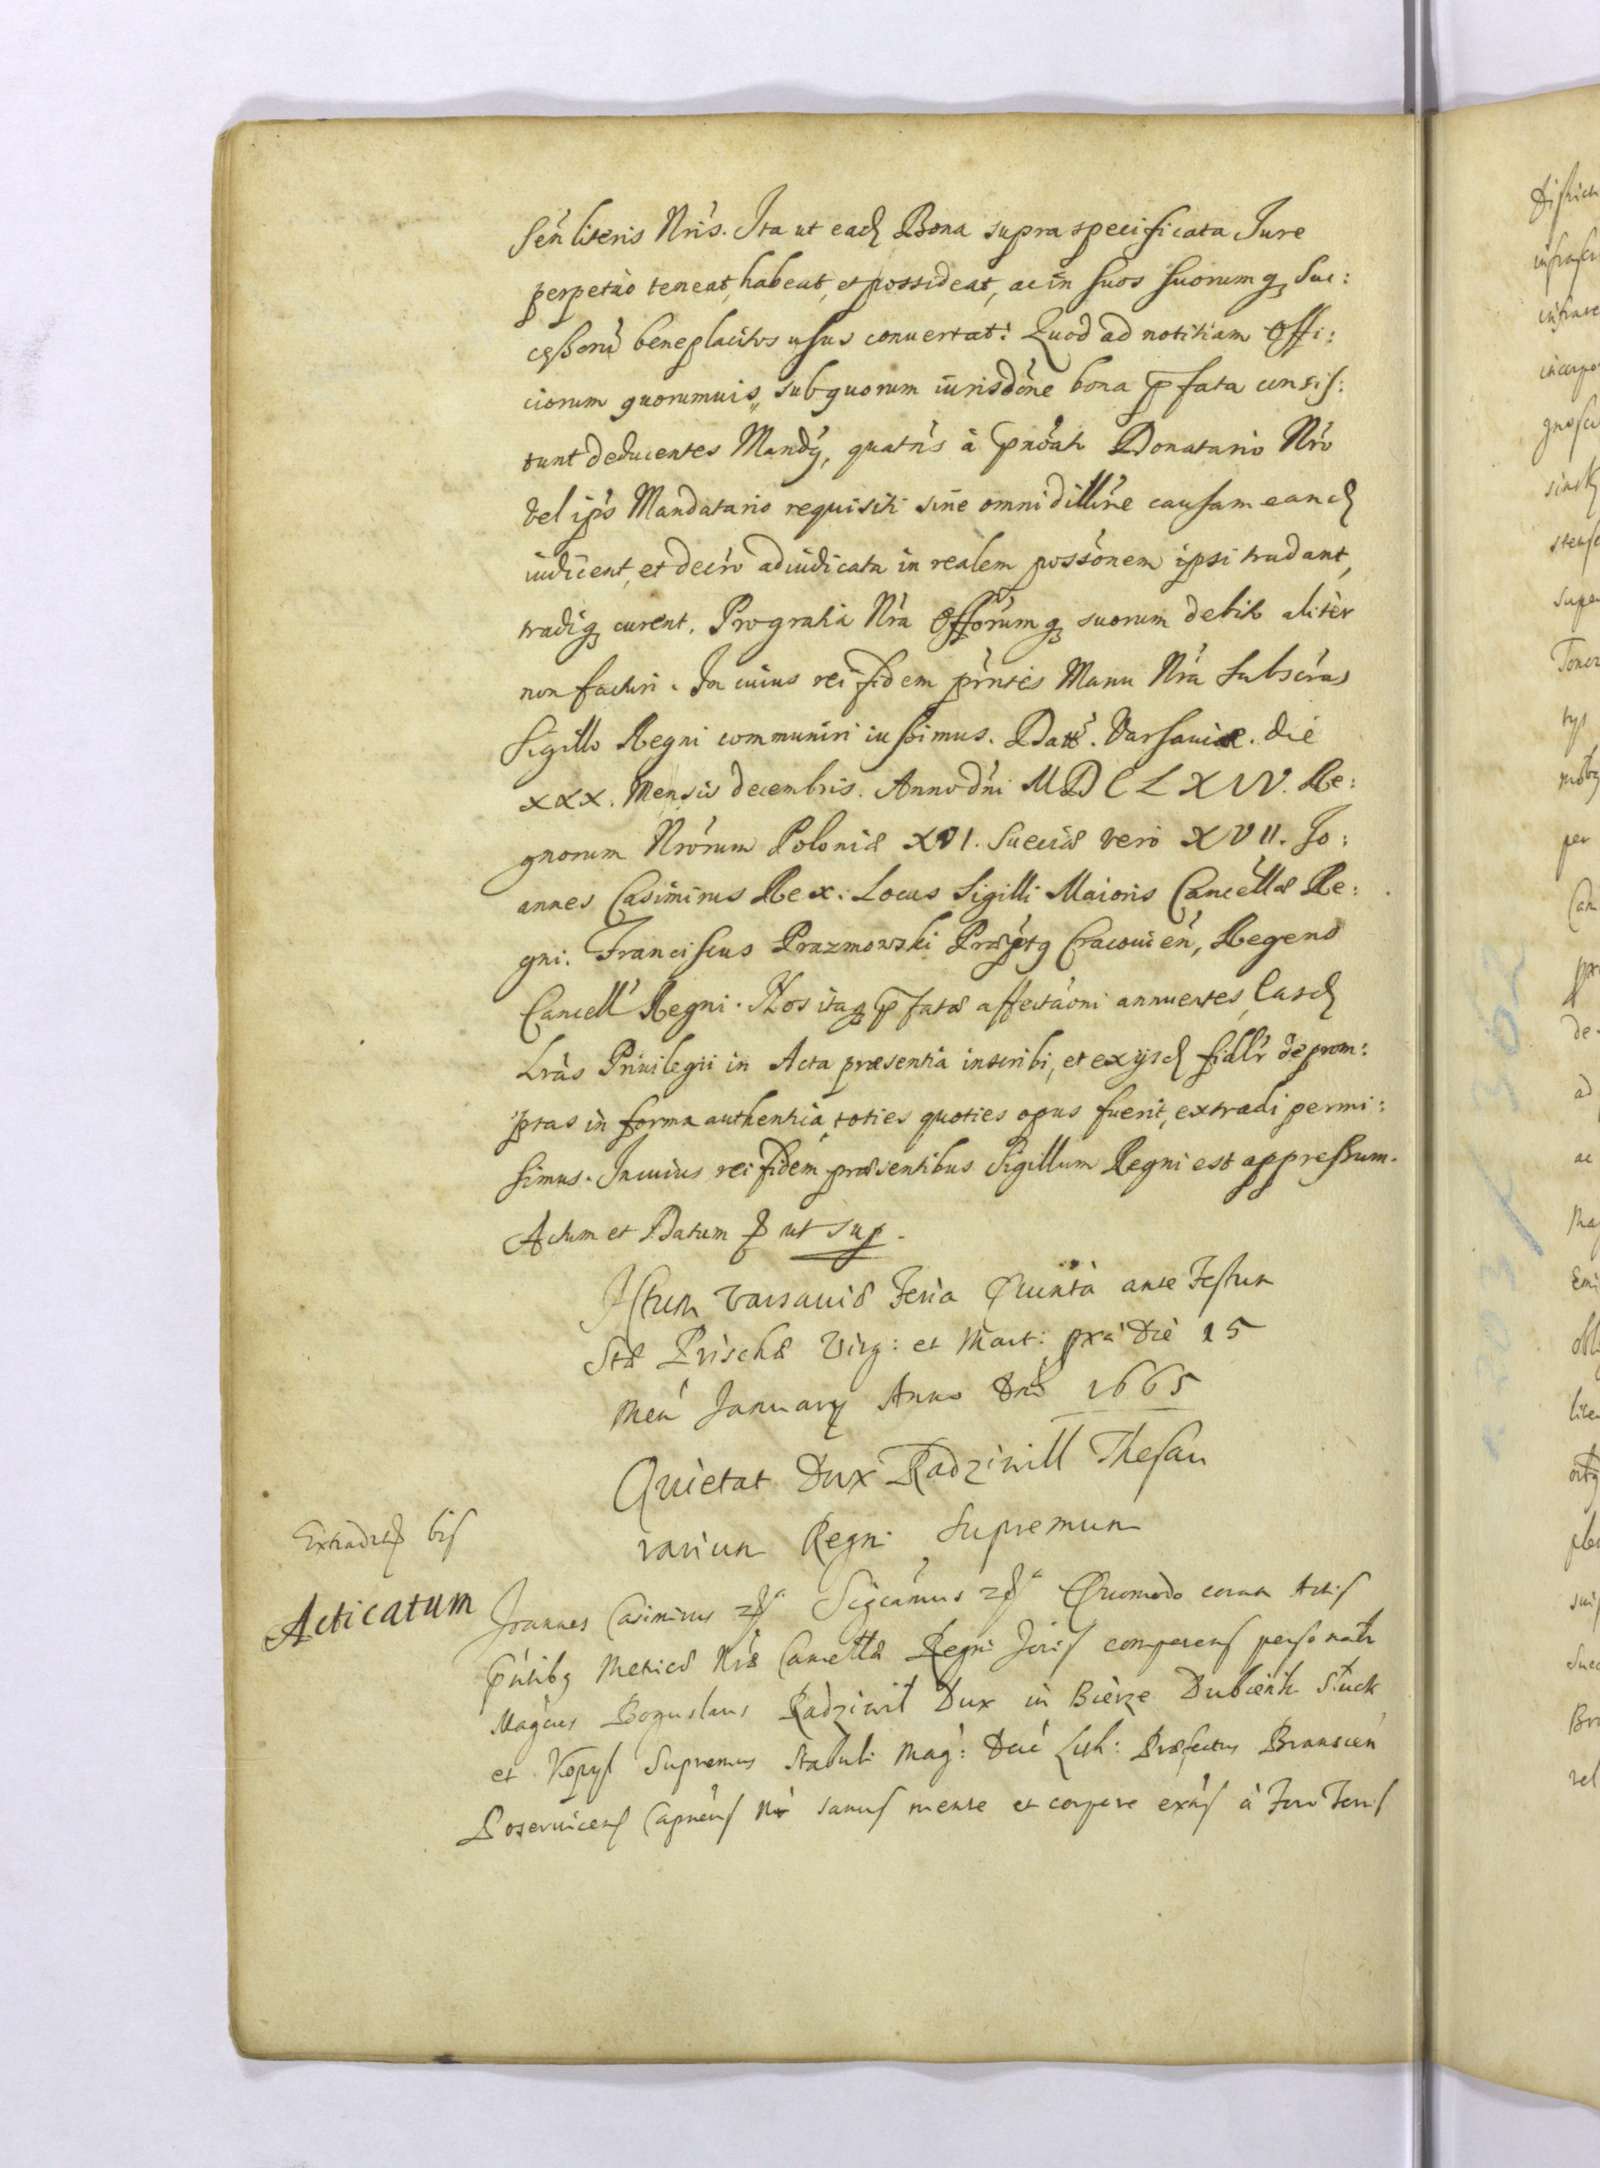 sen̄ literis Nris. Ita ut eadē Bona supra specificata Jure
perpetuo teneat, habeat, et possideat, ac in suos suorumq; Suc:
cessorū beneplacitos usus conuertat: Quod ad notitiam Offi:
ciorum quorumuis, sub quorum iurisdōne bona p̄fata consis:
tunt deducentes Mandꝰ, quatꝰs à Donatario Nro
vel ip̄s Mandatario requisiti sine omni dillne causam eandē
iudicent, et decro adiudicata in realem possōnem ipsi tradant,
tradiq; curent. Pro gratia Nra Offorumq; suorum debito aliter
non facturi. In cuius rei fidem prntes Manu Nra Subscras
Sigillo Regni communiri iussimus. Datt. Varsauiæ. die
XXX. Mensis decembris. Anno dni MDCLXIV. Re:
gnorum Nrorum Poloniæ XVI. Sueciæ vero XVII. Jo:
annes Casimirus Rex: Locus Sigilli Maioris Cancellæ Re:
gni. Franciscus Prazmowski Præptꝰ Cracouien̄, Regens
Cancell Regni. Nos itaq; p̄fatæ affectaoni annuentes, easdē
Lras Priuilegii in Acta præsentia inscribi, et ex ijsdē fidlr deprom:
ptas in forma authentica, toties quoties opus fuerit, extradi permi:
simus. In cuius rei fidem præsentibus Sigillum Regni est appressum.
Actum et Datum ut sup.
Actum Varsauiæ Feria Quinta ante Festum
Stæ Priscæ Virg: et Mart: Die 15
Men January Anno Dni 1665
Quietat Dux Radziwill Thesau
rarium Regni Supremum
Extradit bis
Acticatum
Joannes Casimirus Sigcamus Quomodo coram Actis
pntibq Metricæ Nræ Cancellæ Regni Joris comparens personalr
Magcus Boguslaus Radziwil Dux in Bierze Dubienk Stuck
et Kopyl Supremus Stabuli Mag: Duc Lith: Præfectus Branscen
Poserwicens Capneus Nr sanus mente et corpore exns à Foro Terris